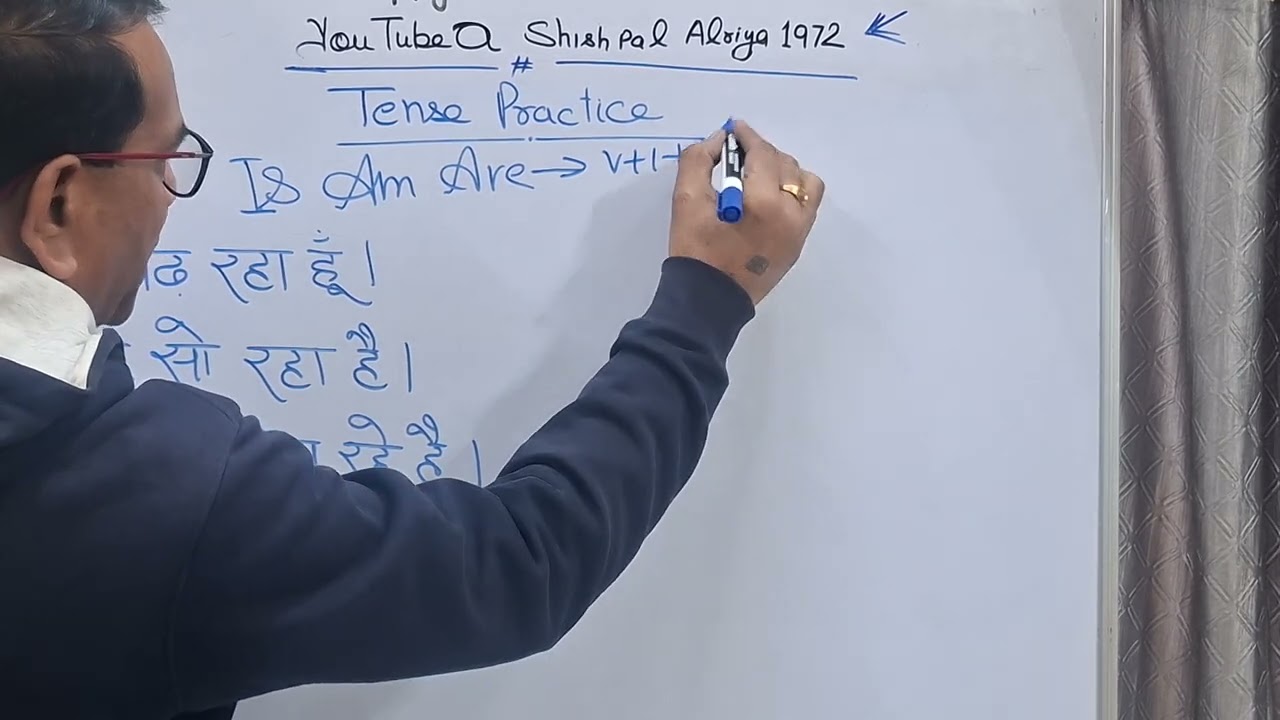 YouTube a Shish pal Alriya 1972
#
Tense Practice
Is Am Are → V+1+
रहा हूँ।
सो रहा है।
रहे है।